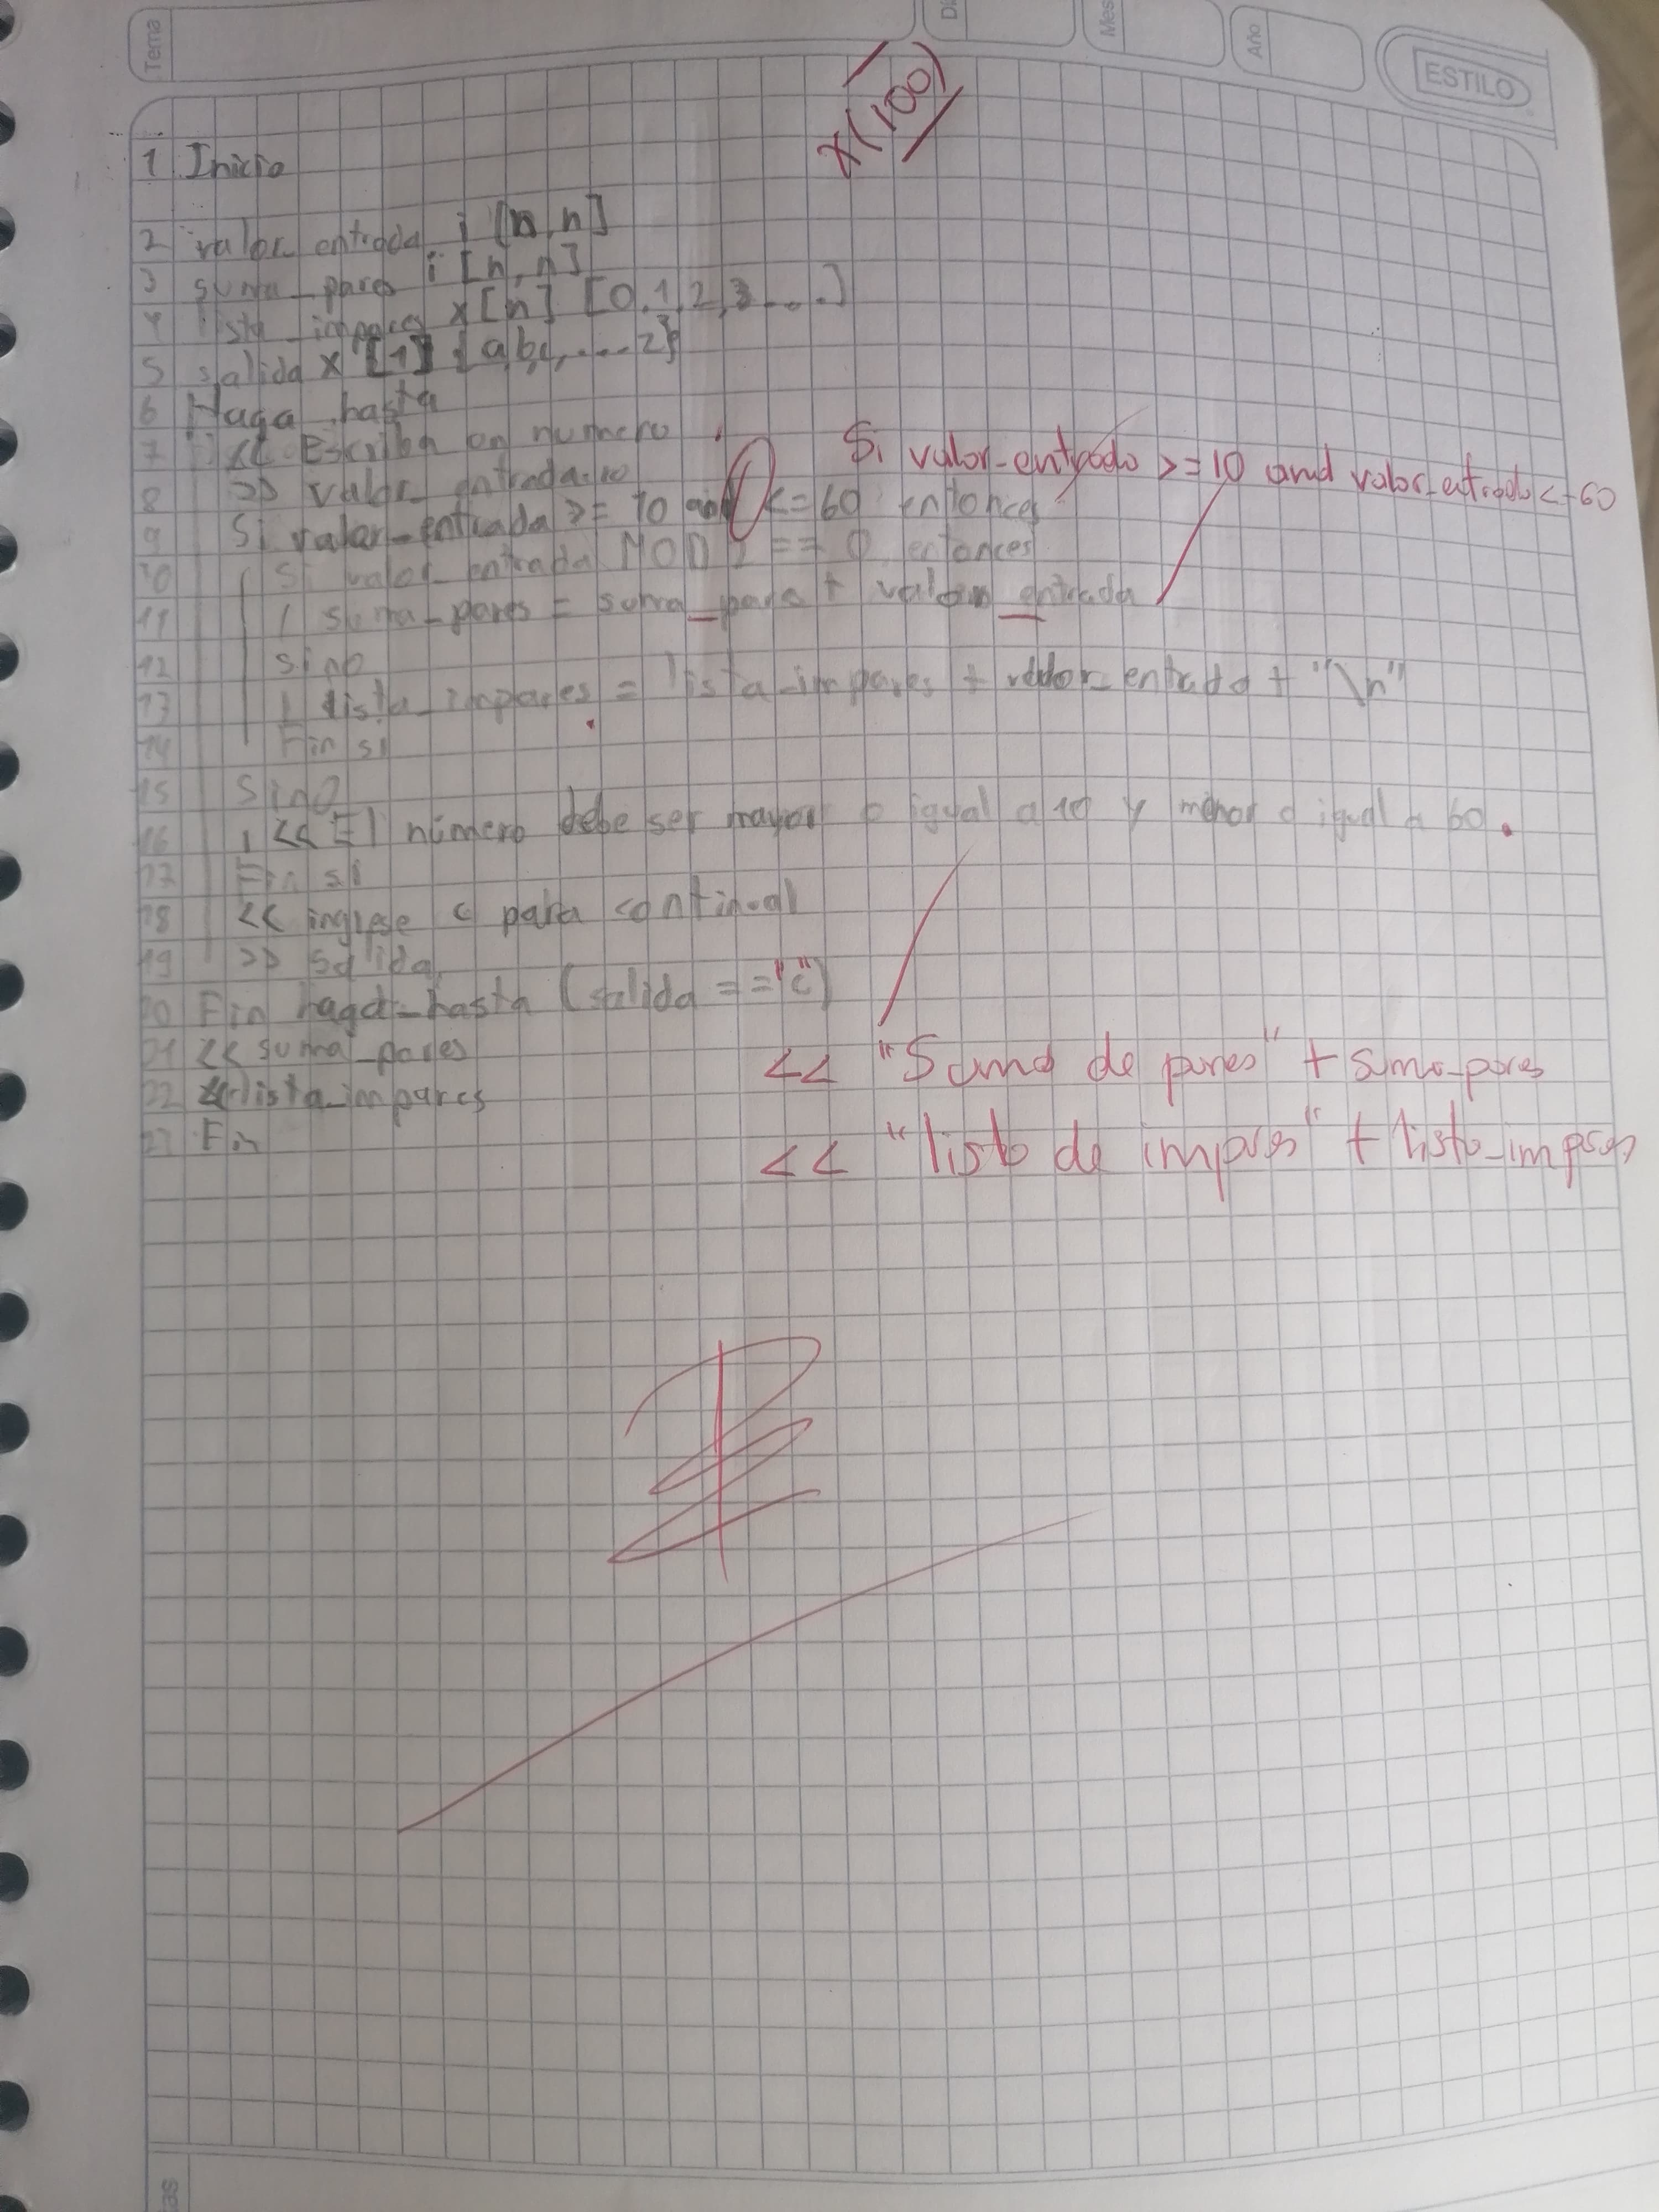 Tema
Mes
Año
ESTILO
x(100)
1 Inicio
2 valor_entrada i [n,n]
3 suma_pares i [n,n]
4 lista_impares x[n] [0,1,2,3...]
5 salida x [1] {a,b,c,....z}
6 Haga hasta
7 << Escriba un numero
8 >> valor_entrada
9 Si valor_entrada >= 10 and <= 60 entonces
Si valor_entrada >= 10 and valor_entrada <= 60
10 Si valor_entrada MOD 2 == 0 entonces
11 suma_pares = suma_pares + valor_entrada
12 sino
13 lista_impares = lista_impares + valor_entrada + "\n"
14 Fin si
15 Sino
16 << El número debe ser mayor o igual a 10 y menor o igual a 60.
17 Fin si
18 << inglese c para continual
19 >> salida
20 Fin haga_hasta (salida == "c")
21 << suma_pares
<< "Suma de pares" + suma_pares
22 << lista_impares
<< "lista de impares" + lista_impares
23 Fin